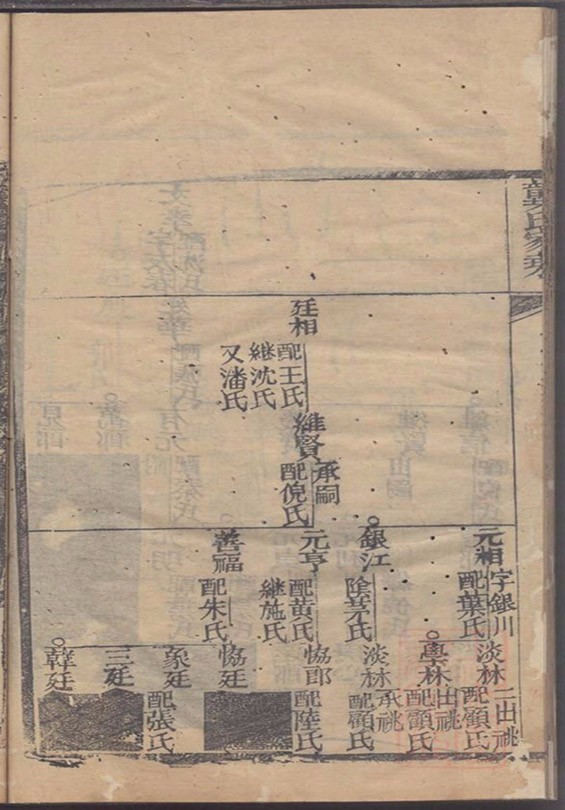 龔氏家乘
廷相
配王氏
継沈氏
又潘氏
維賢
承嗣
配倪氏
元湘
字銀川
配葉氏
銀江
陰茅氏
元亨
配黃氏
継施氏
善福
配朱氏
淡林
二出祧
配顧氏
學林
出祧
配顧氏
淡林
承祧
配顧氏
協郎
配陸氏
協廷
象廷
配張氏
三廷
韓廷